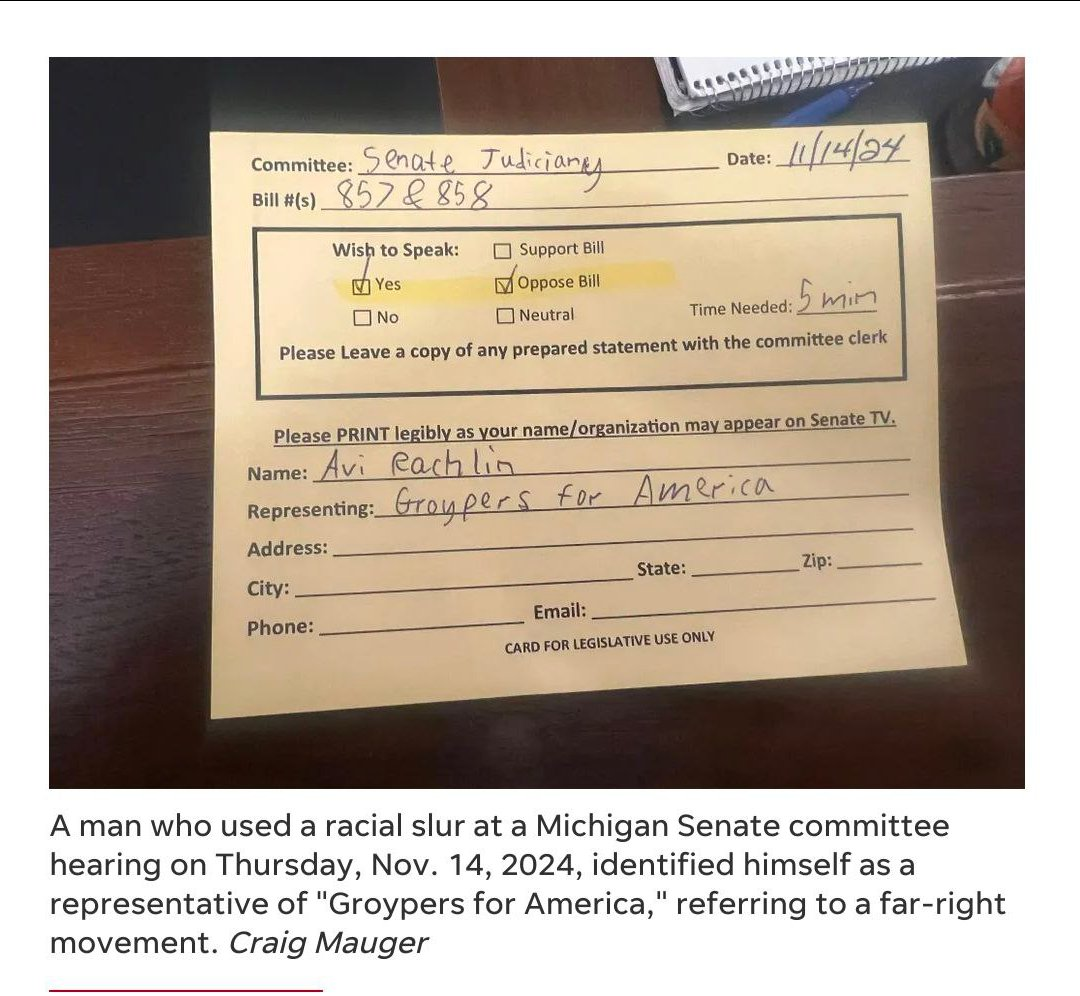 Committee: Senate Judiciary Date: 11/14/24
Bill #(s) 857 & 858
Wish to Speak: Support Bill
Yes Oppose Bill
No Neutral Time Needed: 5 min
Please Leave a copy of any prepared statement with the committee clerk
Please PRINT legibly as your name/organization may appear on Senate TV.
Name: Avi Rachlin
Representing: Groypers for America
Address:
City: State: Zip:
Phone: Email:
CARD FOR LEGISLATIVE USE ONLY
A man who used a racial slur at a Michigan Senate committee
hearing on Thursday, Nov. 14, 2024, identified himself as a
representative of "Groypers for America," referring to a far-right
movement. Craig Mauger